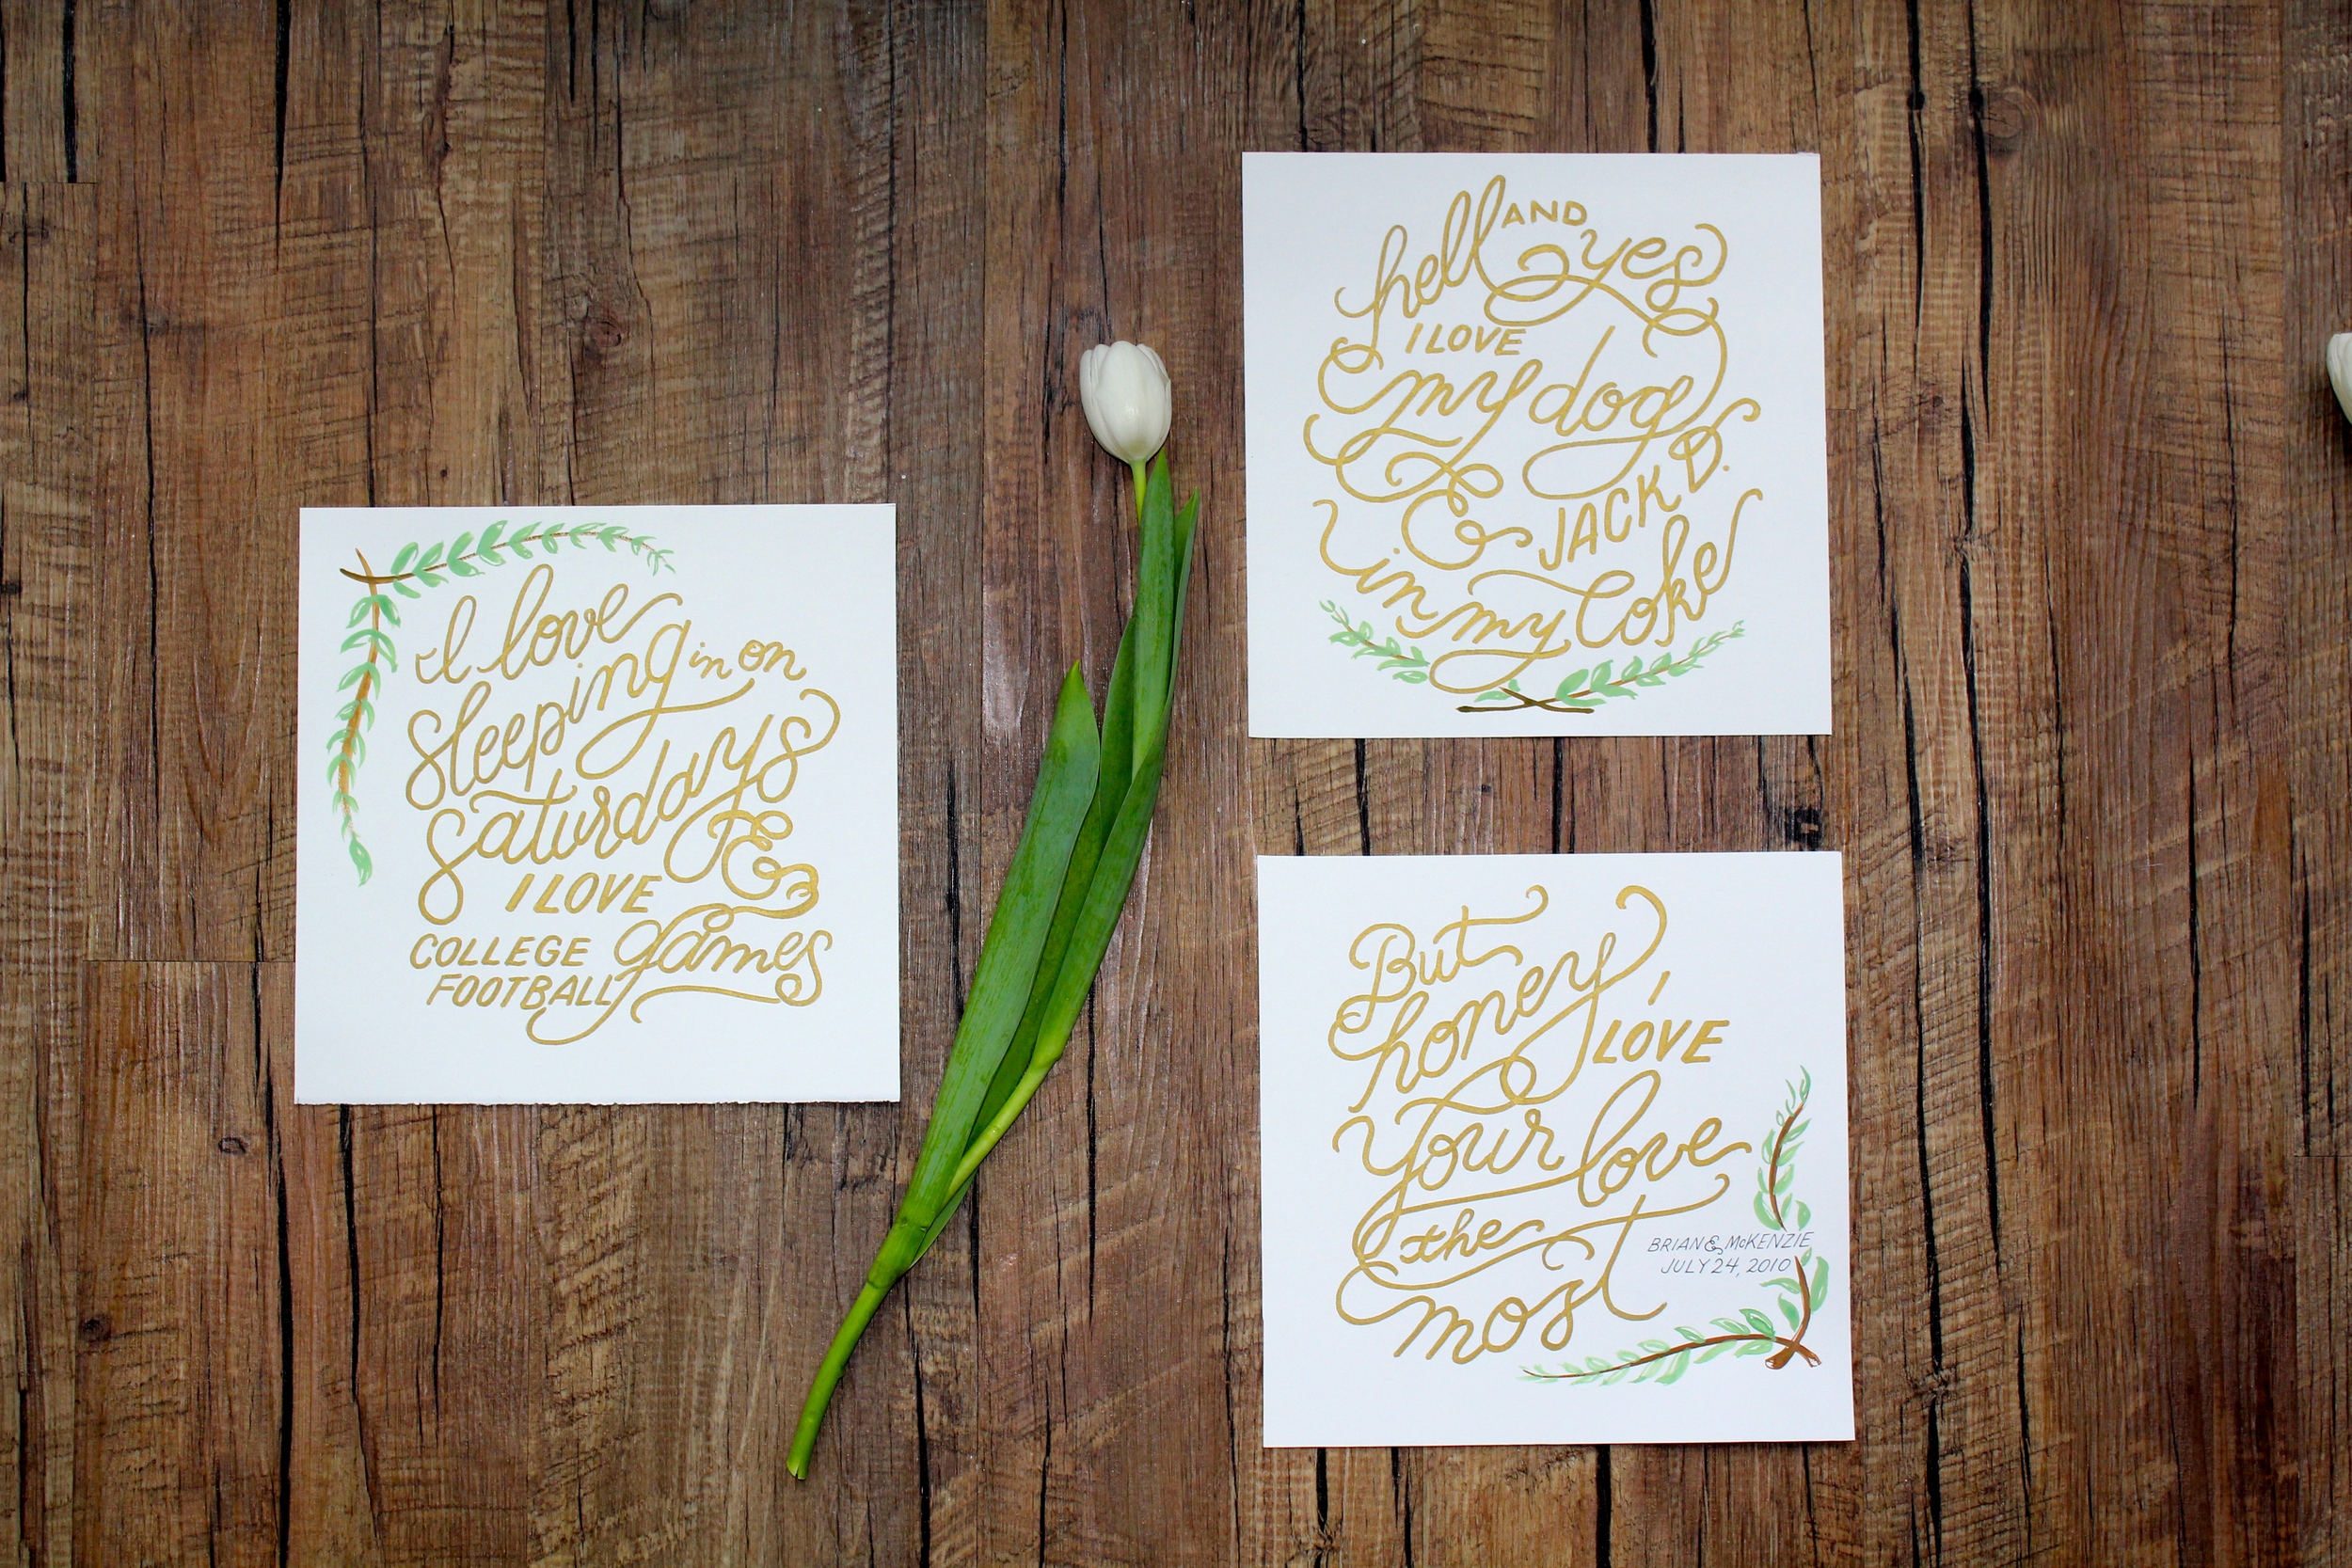 I love
sleeping in on
saturdays
&
I LOVE
COLLEGE games
FOOTBALL
hell AND yes
I LOVE
my dog
& JACK D.
in my Coke
But
honey, I LOVE
Your love
the
most
BRIAN & McKENZIE
JULY 24, 2010